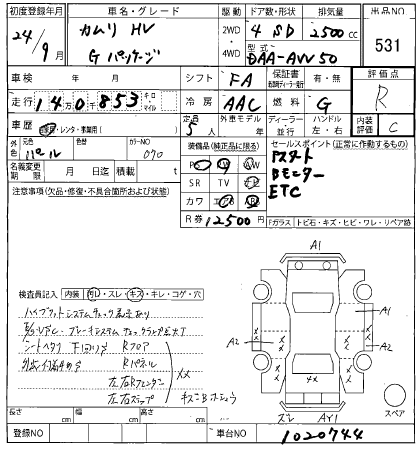 初度登録年月 車名・グレード 駆動 ドア数・形状 排気量 出品NO
24/9月 カムリ HV 2WD 4 SD 2500cc 531
Gパッケージ 4WD 型式 DAA-AVV50
車検 年 月 シフト FA 保証書 有・無 評価点
走行 140853 キロ マイル 冷房 AAC 燃料 G R
車歴 自家用・レンタ・事業用( ) 定員 5人 外車モデル 年 ディーラー 並行 ハンドル 左・右 内装評価 C
外色 元色 パール 色替 カラーNO 070
装備品(純正品に限る) セールスポイント(正常に作動するもの)
名義変更期限 月 日迄 積載量 t
PS PW AW Pスタート
SR TV ナビ Bモニター
カワ エアB ABS ETC
注意事項(欠品・修復・不具合箇所および状態)
R券 12500円 Fガラス トビ石・キズ・ヒビ・ワレ・リペア跡
A1
検査員記入 内装 汚レ・スレ・キズ・キレ・コゲ・穴
ハイブリットシステムチェック表示あり
A1
A2
A2
シートヘタリ 下回りサビ Rフロア
Rパネル
左右Rフェンダー
左右ステップ
××
××
スレ AY1
スペア
長さ cm 幅 cm 高さ cm
登録NO 車台NO 1020744